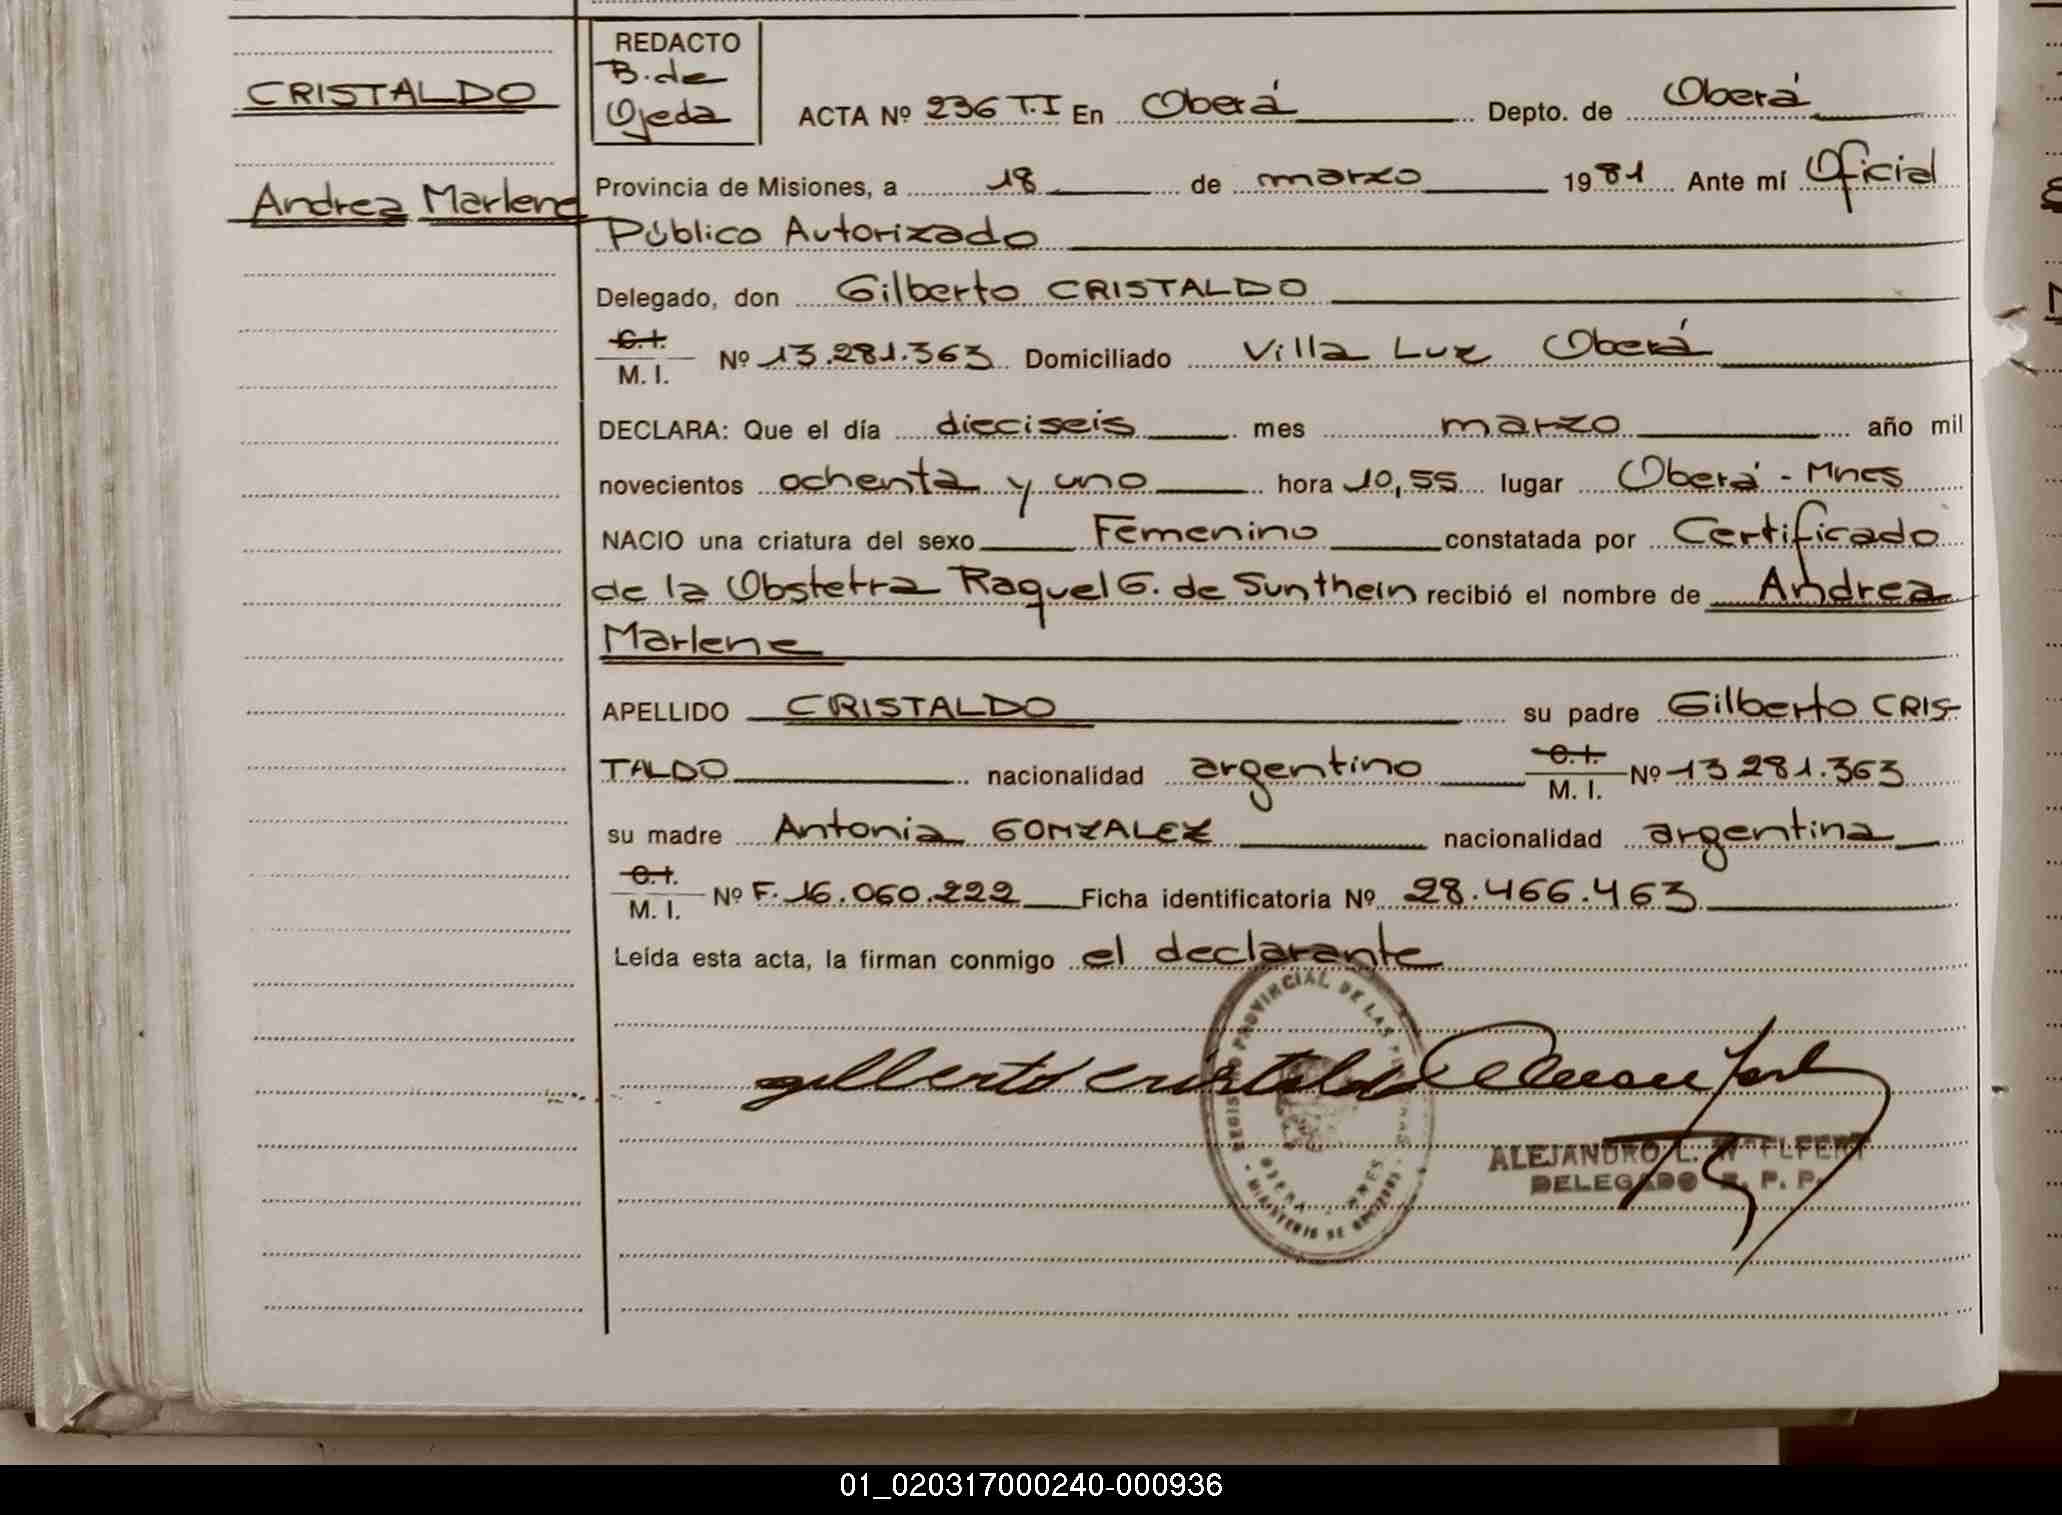 CRISTALDO
Andrea Marlene
REDACTO
B. de
Ojeda
ACTA Nº 236 T.I En Oberá Depto. de Oberá
Provincia de Misiones, a 18 de marzo 1981 Ante mí Oficial
Público Autorizado
Delegado, don Gilberto CRISTALDO
C.I.
M. I. Nº 13.281.363 Domiciliado Villa Luz Oberá
DECLARA: Que el día dieciseis mes marzo año mil
novecientos ochenta y uno hora 10,55 lugar Oberá - Mnes
NACIO una criatura del sexo Femenino constatada por Certificado
de la Obstetra Raquel G. de Sunthein recibió el nombre de Andrea
Marlene
APELLIDO CRISTALDO su padre Gilberto CRIS-
TALDO nacionalidad argentino C.I. M. I. Nº 13 281.363
su madre Antonia GONZALEZ nacionalidad argentina
C.I.
M. I. Nº F. 16.060.222 Ficha identificatoria Nº 28.466.463
Leída esta acta, la firman conmigo el declarante
gilberto cristaldo
REGISTRO PROVINCIAL DE LAS PERSONAS
OBERA - MNES
MINISTERIO DE GOBIERNO
ALEJANDRO L.
DELEGADO R. P. P.
01_020317000240-000936